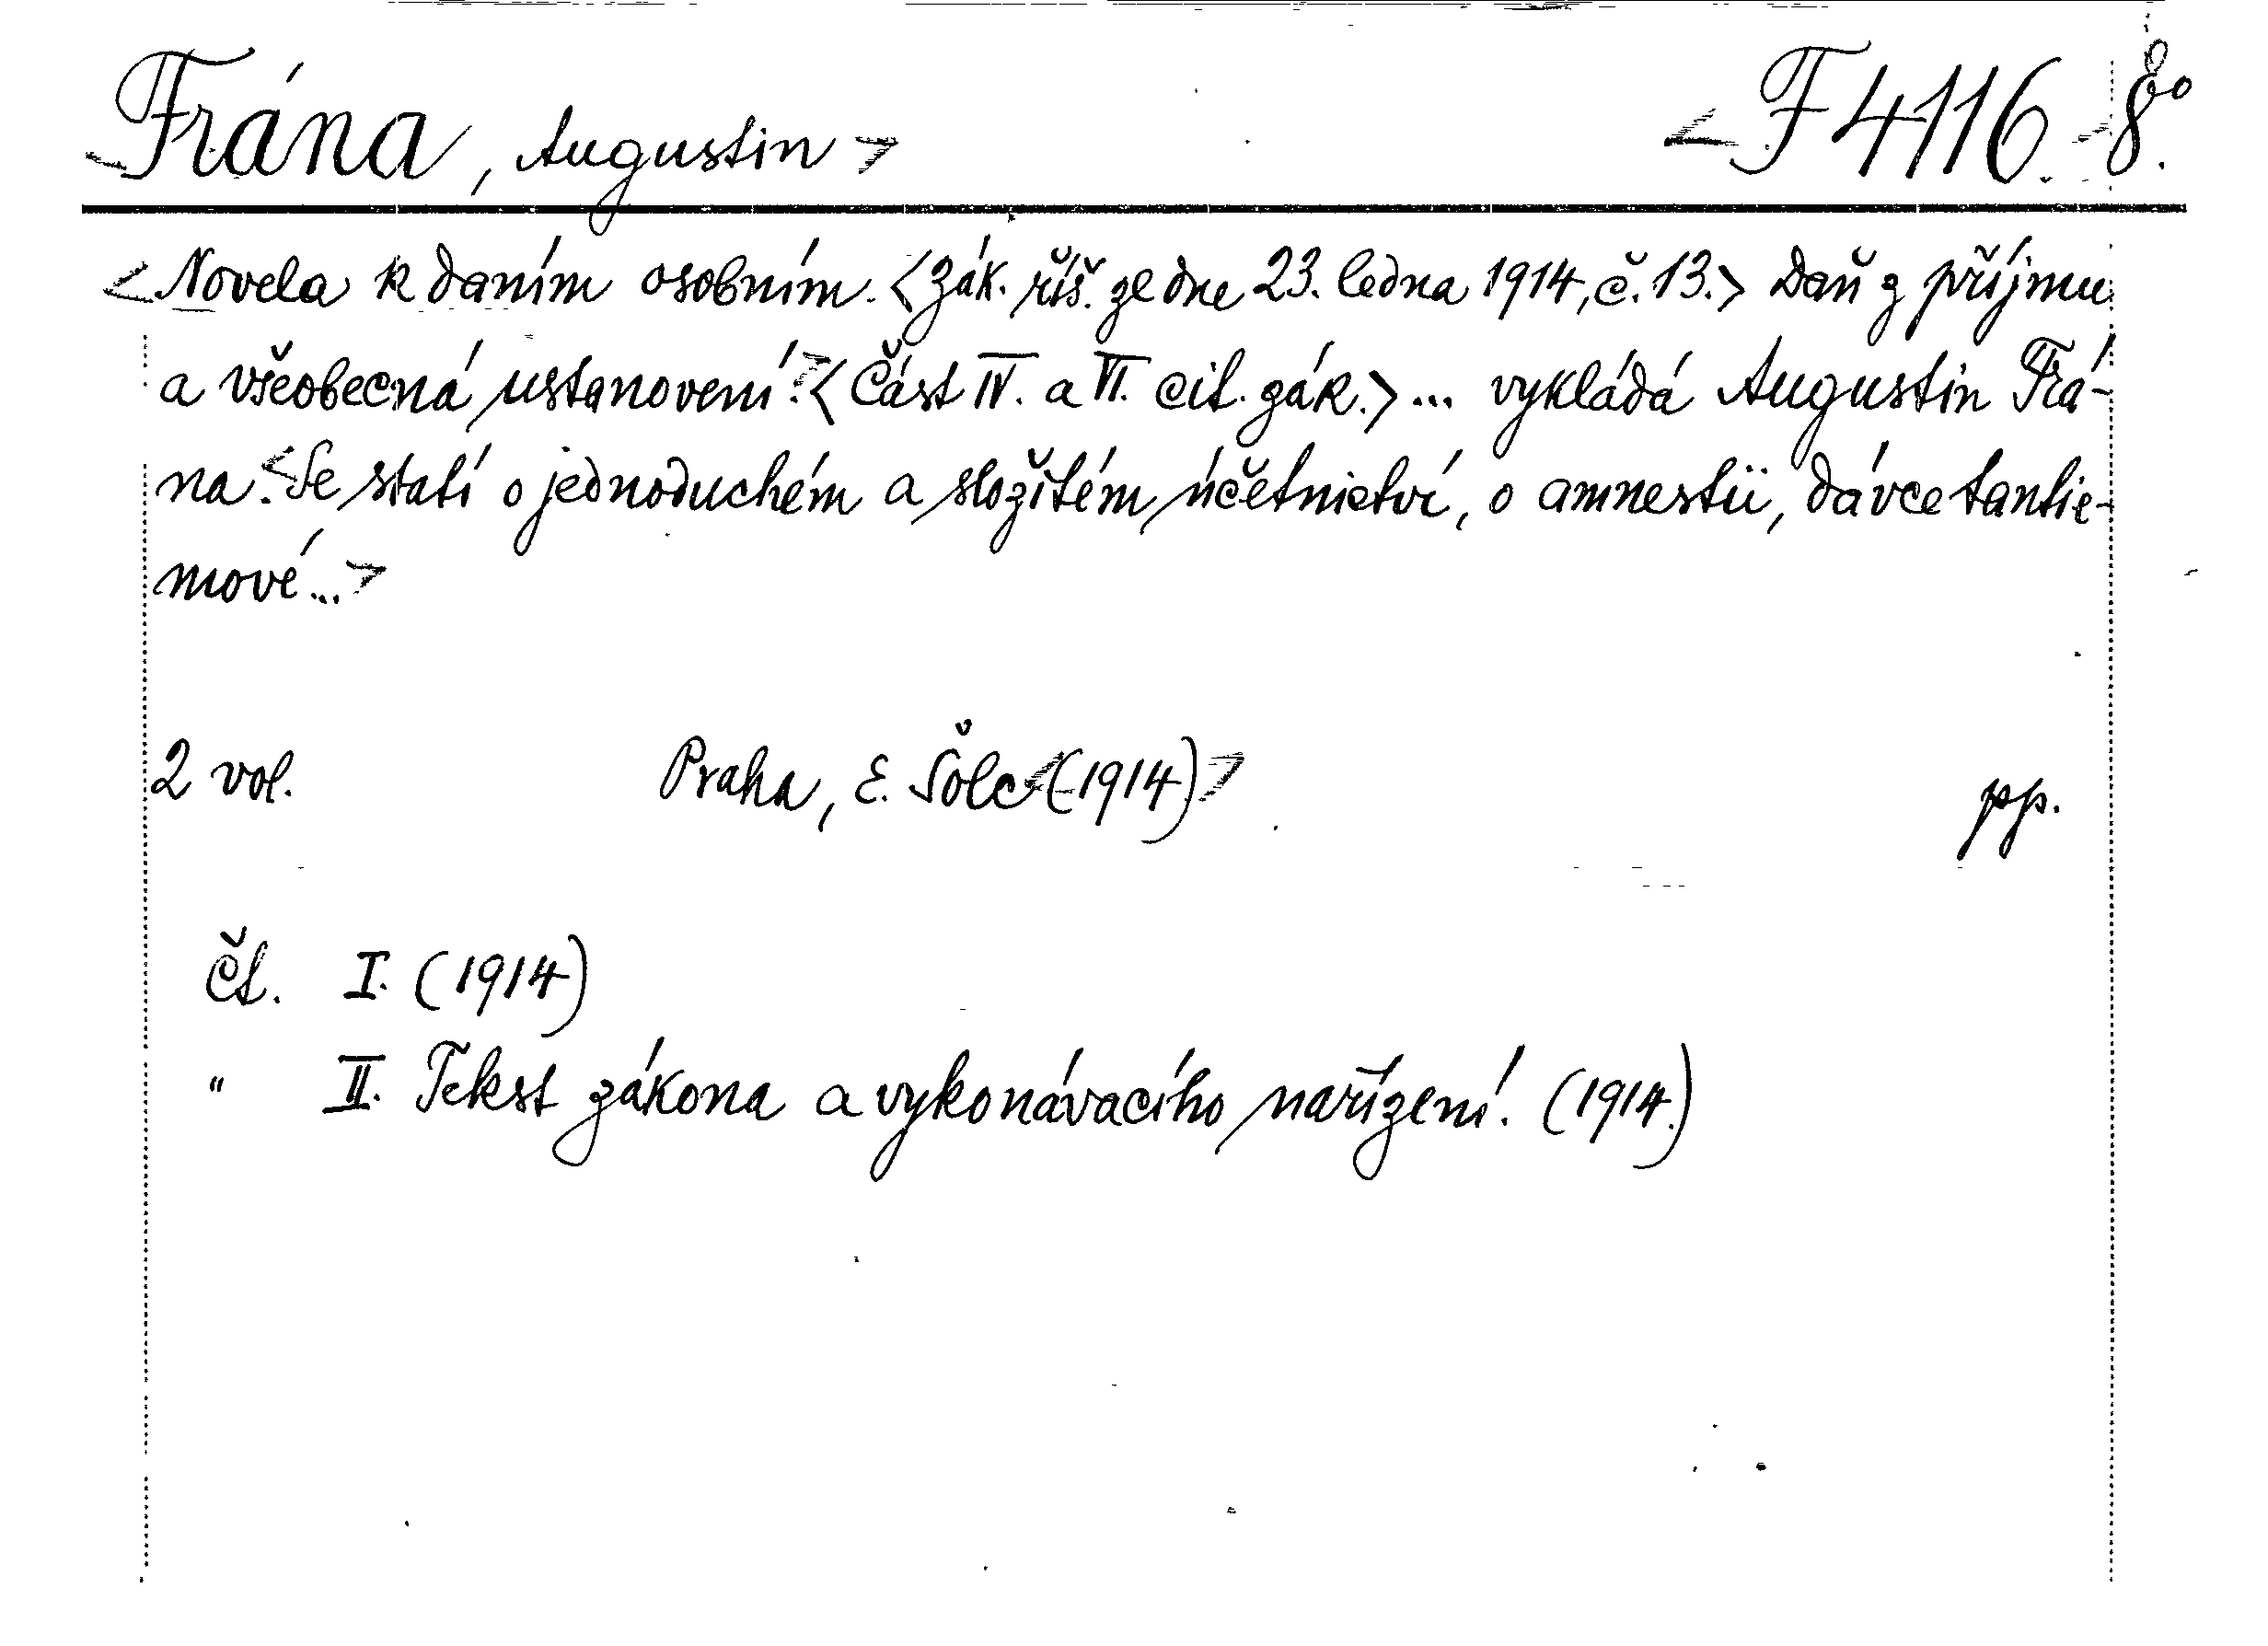 <Frána, Augustin>
<F 4116.-8º.
<Novela k daním osobním. <Zák. říš. ze dne 23. ledna 1914, č. 13.> Daň z příjmu
a všeobecná ustanovení.> <Část IV. a VI. cit. zák.> ... vykládá Augustin Frá-
na. <Se statí o jednoduchém a složitém účetnictví, o amnestii, dávce tantie-
mové...>
2 vol. Praha, E. Šolc <(1914)> pp.
Čt. I. (1914)
" II. Tekst zákona a vykonávacího nařízení. (1914.)